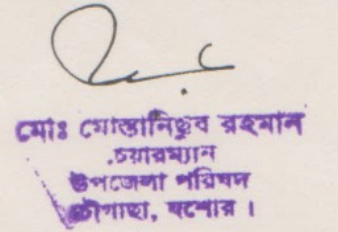 মোঃ মোস্তানিছুর রহমান
চেয়ারম্যান
উপজেলা পরিষদ
চৌগাছা, যশোর ।